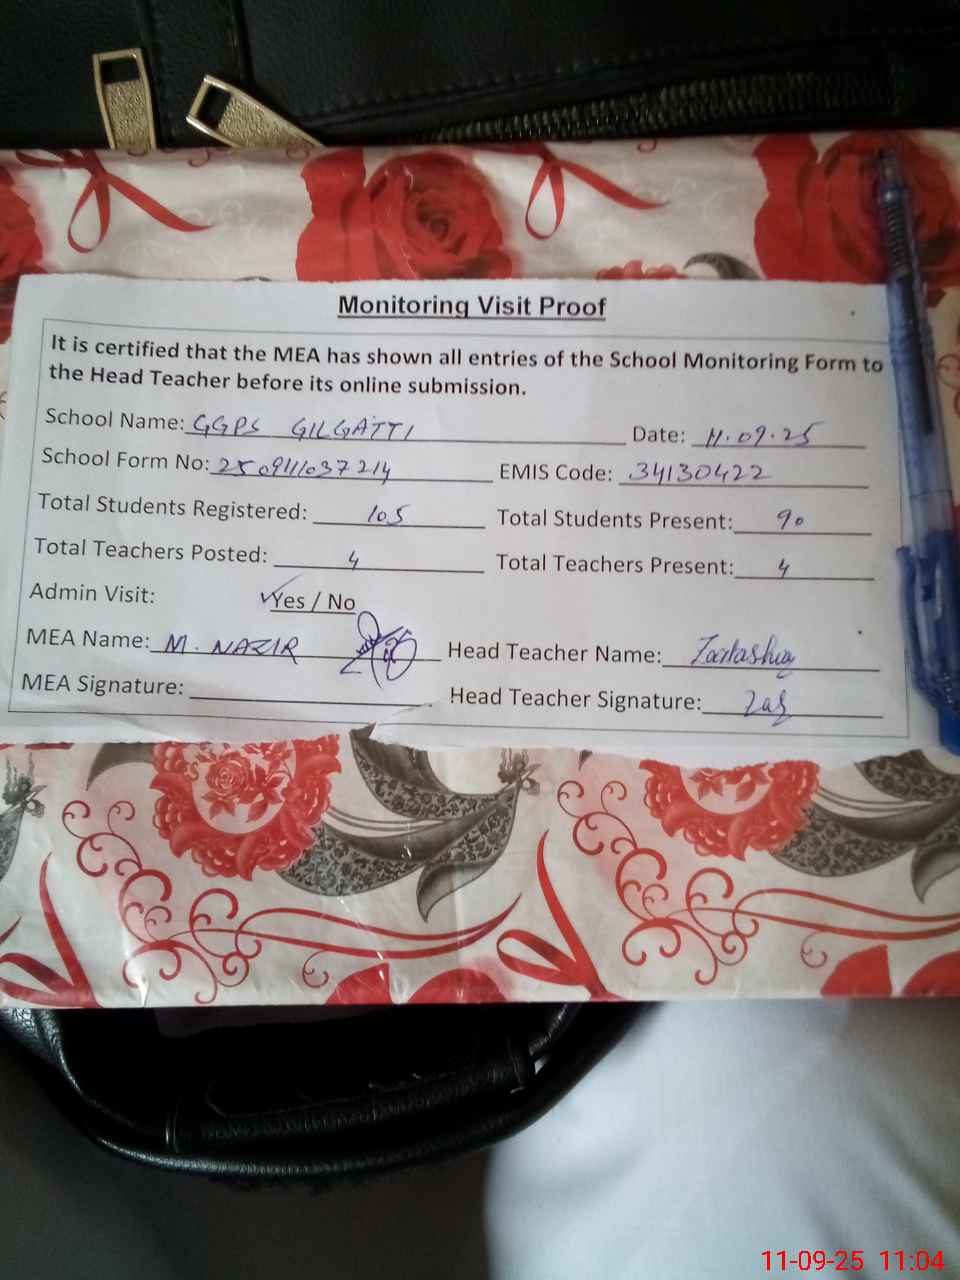 Monitoring Visit Proof
It is certified that the MEA has shown all entries of the School Monitoring Form to
the Head Teacher before its online submission.
School Name: GGPS GILGATTI Date: 11.09.25
School Form No: 250911037214 EMIS Code: 34130422
Total Students Registered: 105 Total Students Present: 90
Total Teachers Posted: 4 Total Teachers Present: 4
Admin Visit: ✓Yes / No
MEA Name: M. NAZIR Head Teacher Name:
MEA Signature: Head Teacher Signature:
11-09-25 11:04